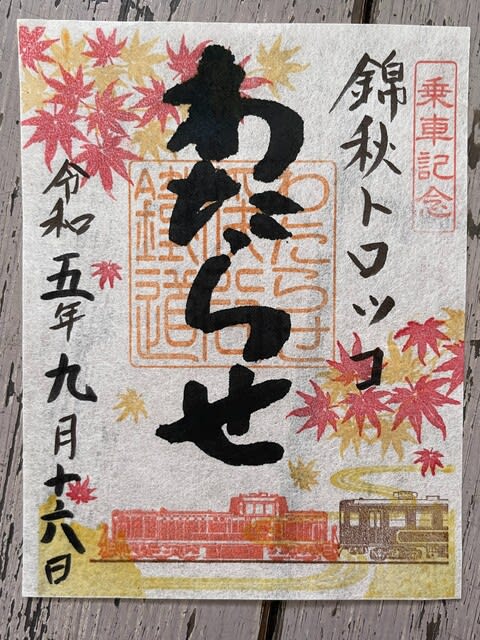 乗車記念
錦秋トロッコ
わたらせ
わたらせ
渓谷
鐵道
令和五年九月十六日